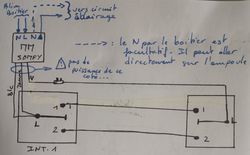 Alim
Boitier
vers circuit
éclairage
N L N
MM
SOMFY
le N par le boîtier est
facultatif. Il peut aller
directement sur l'ampoule
pas de
puissance de ce
coté...
Blc
L
1
2
1
2
L
INT. 1